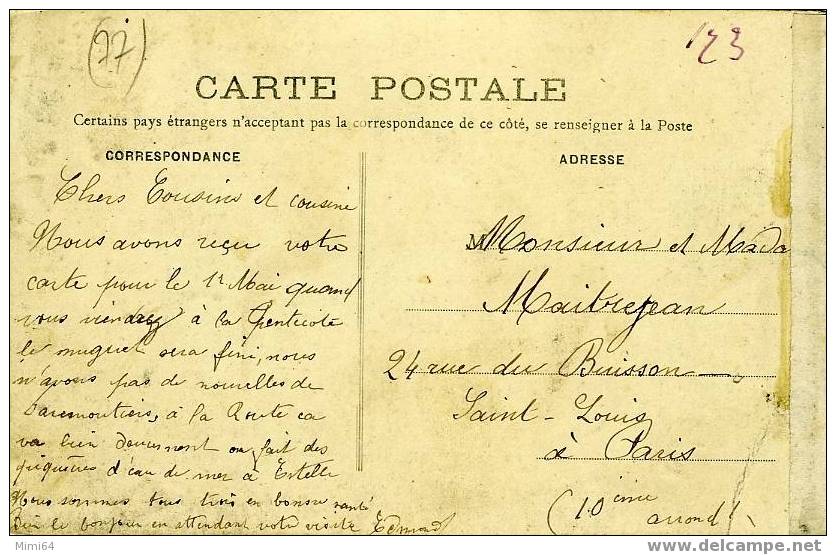 (77)
123
CARTE POSTALE
Certains pays étrangers n'acceptent pas la correspondance de ce côté, se renseigner à la Poste
CORRESPONDANCE
Chers Cousins et cousine
Nous avons reçu votre
carte pour le 1r Mai quand
vous viendrez à la Penticote
le muguet sera fini, nous
n'avons pas de nouvelles de
Faremoutiers, à la Route ca
va bien doucement on fait des
piqueures d'eau de mer à Estelle
Nous sommes tous trois en bonne santé
Bien le bonjour en attendant votre visite Edmond
ADRESSE
Monsieur et Mada
Maitrejean
24 rue du Buisson
Saint-Louis
à Paris
(10 ième
arrond
Mimi64
www.delcampe.net